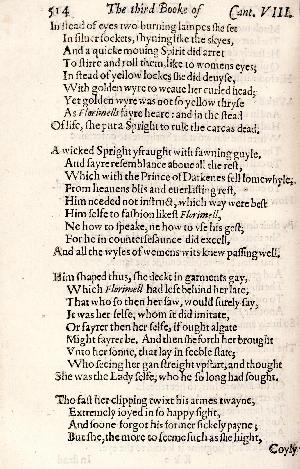 514 The third Booke of Cant. VIII.
In stead of eyes two burning lampes she set
In siluer sockets, shyning like the skyes,
And a quicke mouing Spirit did arret
To stirre and roll them, like to womens eyes;
In stead of yellow lockes she did deuyse,
With golden wyre to weaue her curled head;
Yet golden wyre was not so yellow thryse
As Florimells fayre heare: and in the stead
Of life, she put a Spright to rule the carcas dead.
A wicked Spright yfraught with fawning guyle,
And fayre resemblance aboue all the rest,
Which with the Prince of Darkenes fell somewhyle,
From heauens blis and euerlasting rest,
Him needed not instruct, which way were best
Him selfe to fashion likest Florimell,
Ne how to speake, ne how to vse his gest;
For he in counterfesaunce did excell,
And all the wyles of wemens wits knew passing well.
Him shaped thus, she deckt in garments gay,
Which Florimell had left behind her late,
That who so then her saw, would surely say,
It was her selfe, whom it did imitate,
Or fayrer then her selfe, if ought algate
Might fayrer be. And then she forth her brought
Vnto her sonne, that lay in feeble state;
Who seeing her gan streight vpstart, and thought
She was the Lady selfe, who he so long had sought.
Tho fast her clipping twixt his armes twayne,
Extremely ioyed in so happy sight,
And soone forgot his former sickely payne;
But she, the more to seeme such as she hight,
Coyly